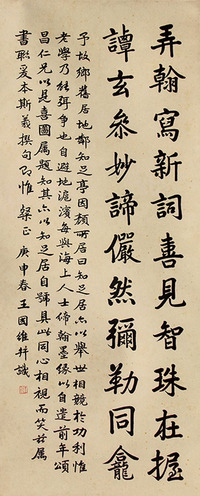 弄翰寫新詞善見智珠在握
譚玄參妙諦儼然彌勒同龕
予故鄉舊居地鄰知足亭因額所居曰知足居亦以舉世相競於功利惟
老學乃能弭爭也自避地滬濱每與海上人士締翰墨緣以自遣前年頌
昌仁兄以是喜圖屬題知其亦以知足居自號具此同心相視而笑茲屬
書聯爰本斯義撰句即惟 粲正 庚申春王國維并識